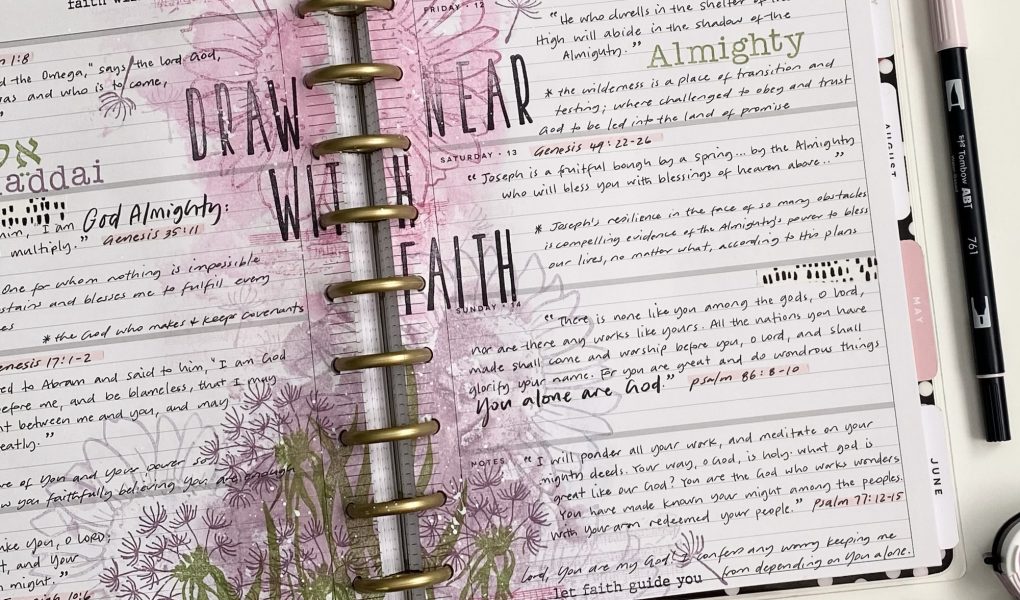 faith wi
n 1:8
d the Omega," says the Lord God,
was and who is to come,
אל
haddai
him, "I am God Almighty:
multiply." Genesis 35:11
One for whom nothing is impossible
stains and blesses me to fulfill every
es
* the God who makes & keeps covenants
enesis 17:1-2
ed to Abram and said to him, "I am God
efore me, and be blameless, that I may
nt between me and you, and may
eatly."
re of You and Your power so I
w you faithfully believing You are enough
ike You, O LORD;
t, and your
n might."
h 10:6
DRAW NEAR
WITH
FAITH
FRIDAY • 12
"He who dwells in the shelter of the
High will abide in the shadow of the
Almighty." Almighty
* the wilderness is a place of transition and
testing; where challenged to obey and trust
God to be led into the land of promise
SATURDAY • 13 Genesis 49:22-26
"Joseph is a fruitful bough by a spring... by the Almighty
who will bless you with blessings of heaven above..."
* Joseph's resilience in the face of so many obstacles
is compelling evidence of the Almighty's power to bless
our lives, no matter what, according to His plans
SUNDAY • 14
"There is none like you among the gods, O Lord,
nor are there any works like yours. All the nations you have
made shall come and worship before you, O Lord, and shall
glorify your name. For you are great and do wondrous things
You alone are God." Psalm 86:8-10
NOTES
"I will ponder all your work, and meditate on your
mighty deeds. Your way, O God, is holy. What god is
great like our God? You are the God who works wonders
You have made known your might among the peoples.
With your arm redeemed your people." Psalm 77:12-15
Lord, You are my God! I confess any worry keeping me
from depending on You alone.
let faith guide you
AUGUST
MAY
JUNE
Tombow ABT
761